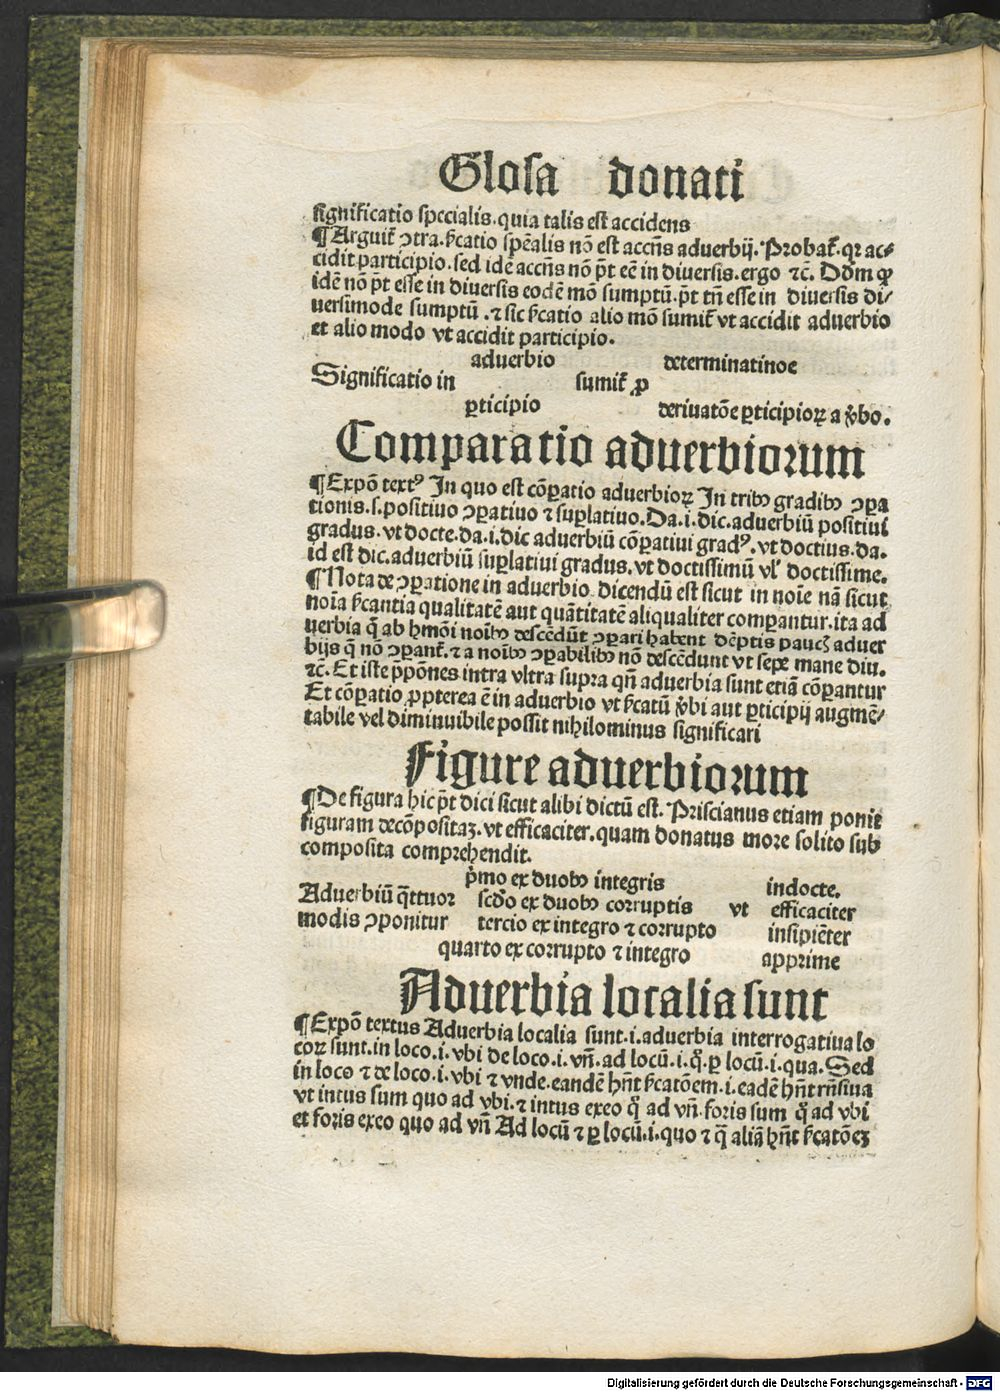 Glosa donati
significatio specialis.quia talis est accidens
¶Arguit᷒ ↄtra.ſ̄catio spēalis nō est accn̄s aduerbij.Probat᷒.qꝛ ac⸗
cidit participio.sed idē accn̄s nō p̄t eē in diuersis.ergo ⁊c̄. Dd̄m ꝙ
idē nō p̄t esse in diuersis eodē mō sumptū.p̄t tn̄ esse in diuersis di⸗
uersimode sumptū .⁊ sic ſ̄catio alio mō sumit᷒ vt accidit aduerbio
et alio modo vt accidit participio.
aduerbio determinatinoe
Significatio in sumit᷒ ꝓ
ꝑticipio deriuatōe ꝑticipioꝝ a v̓bo.
Comparatio aduerbiorum
¶Expō textꝰ In quo est cōꝑatio aduerbioꝝ In tribꝰ gradibꝰ ↄꝑa
tionis.s.positiuo ↄꝑatiuo ⁊ suꝑlatiuo.Da.i.dic.aduerbiū positiui
gradus.vt docte.da.i.dic aduerbiū cōꝑatiui gradꝰ.vt doctius.da.
id est dic.aduerbiū suꝑlatiui gradus.vt doctissimū vl̓ doctissime.
¶Nota de ↄꝑatione in aduerbio dicendū est sicut in noīe nā sicut
noīa ſ̄cantia qualitatē aut quātitatē aliqualiter comꝑantur.ita ad
uerbia q̄ ab hmōi noībꝰ descēdūt ↄꝑari habent dēptis paucꝭ aduer
bijs q̄ nō ↄꝑant᷒.⁊ a noībꝰ ↄꝑabilibꝰ nō descēdunt vt sepe mane diu.
⁊c̄. Et iste p̄pōnes intra vltra supra qn̄ aduerbia sunt etiā cōꝑantur
Et cōꝑatio ꝓpterea ē in aduerbio vt ſ̄catū v̓bi aut ꝑticipij augmē⸗
tabile vel diminuibile possit nihilominus significari
Figure aduerbiorum
¶De figura hic p̄t dici sicut alibi dictū est. Priscianus etiam ponit
figuram decōpositaꝫ.vt efficaciter.quam donatus more solito sub
composita comprehendit.
p̓mo ex duobꝰ integris indocte.
Aduerbiū q̄ttuor scd̓o ex duobꝰ corruptis vt efficaciter
modis ↄponitur tercio ex integro ⁊ corrupto insipiēter
quarto ex corrupto ⁊ integro apprime
Aduerbia localia sunt
¶Expō textus Aduerbia localia sunt.i.aduerbia interrogatiua lo
coꝝ sunt.in loco.i.vbi de loco.i.vn̄.ad locū.i.q̊.ꝑ locū.i.qua.Sed
in loco ⁊ de loco.i.vbi ⁊ vnde.eandē hn̄t ſ̄catōem.i.eadē hn̄t rn̄siua
vt intus sum quo ad vbi.⁊ intus exeo q̊ ad vn̄.foris sum q̊ ad vbi
et foris exeo quo ad vn̄ Ad locū ⁊ ꝑ locū.i.quo ⁊ q̄ aliā hn̄t ſ̄catōeꝫ
Digitalisierung gefördert durch die Deutsche Forschungsgemeinschaft - DFG